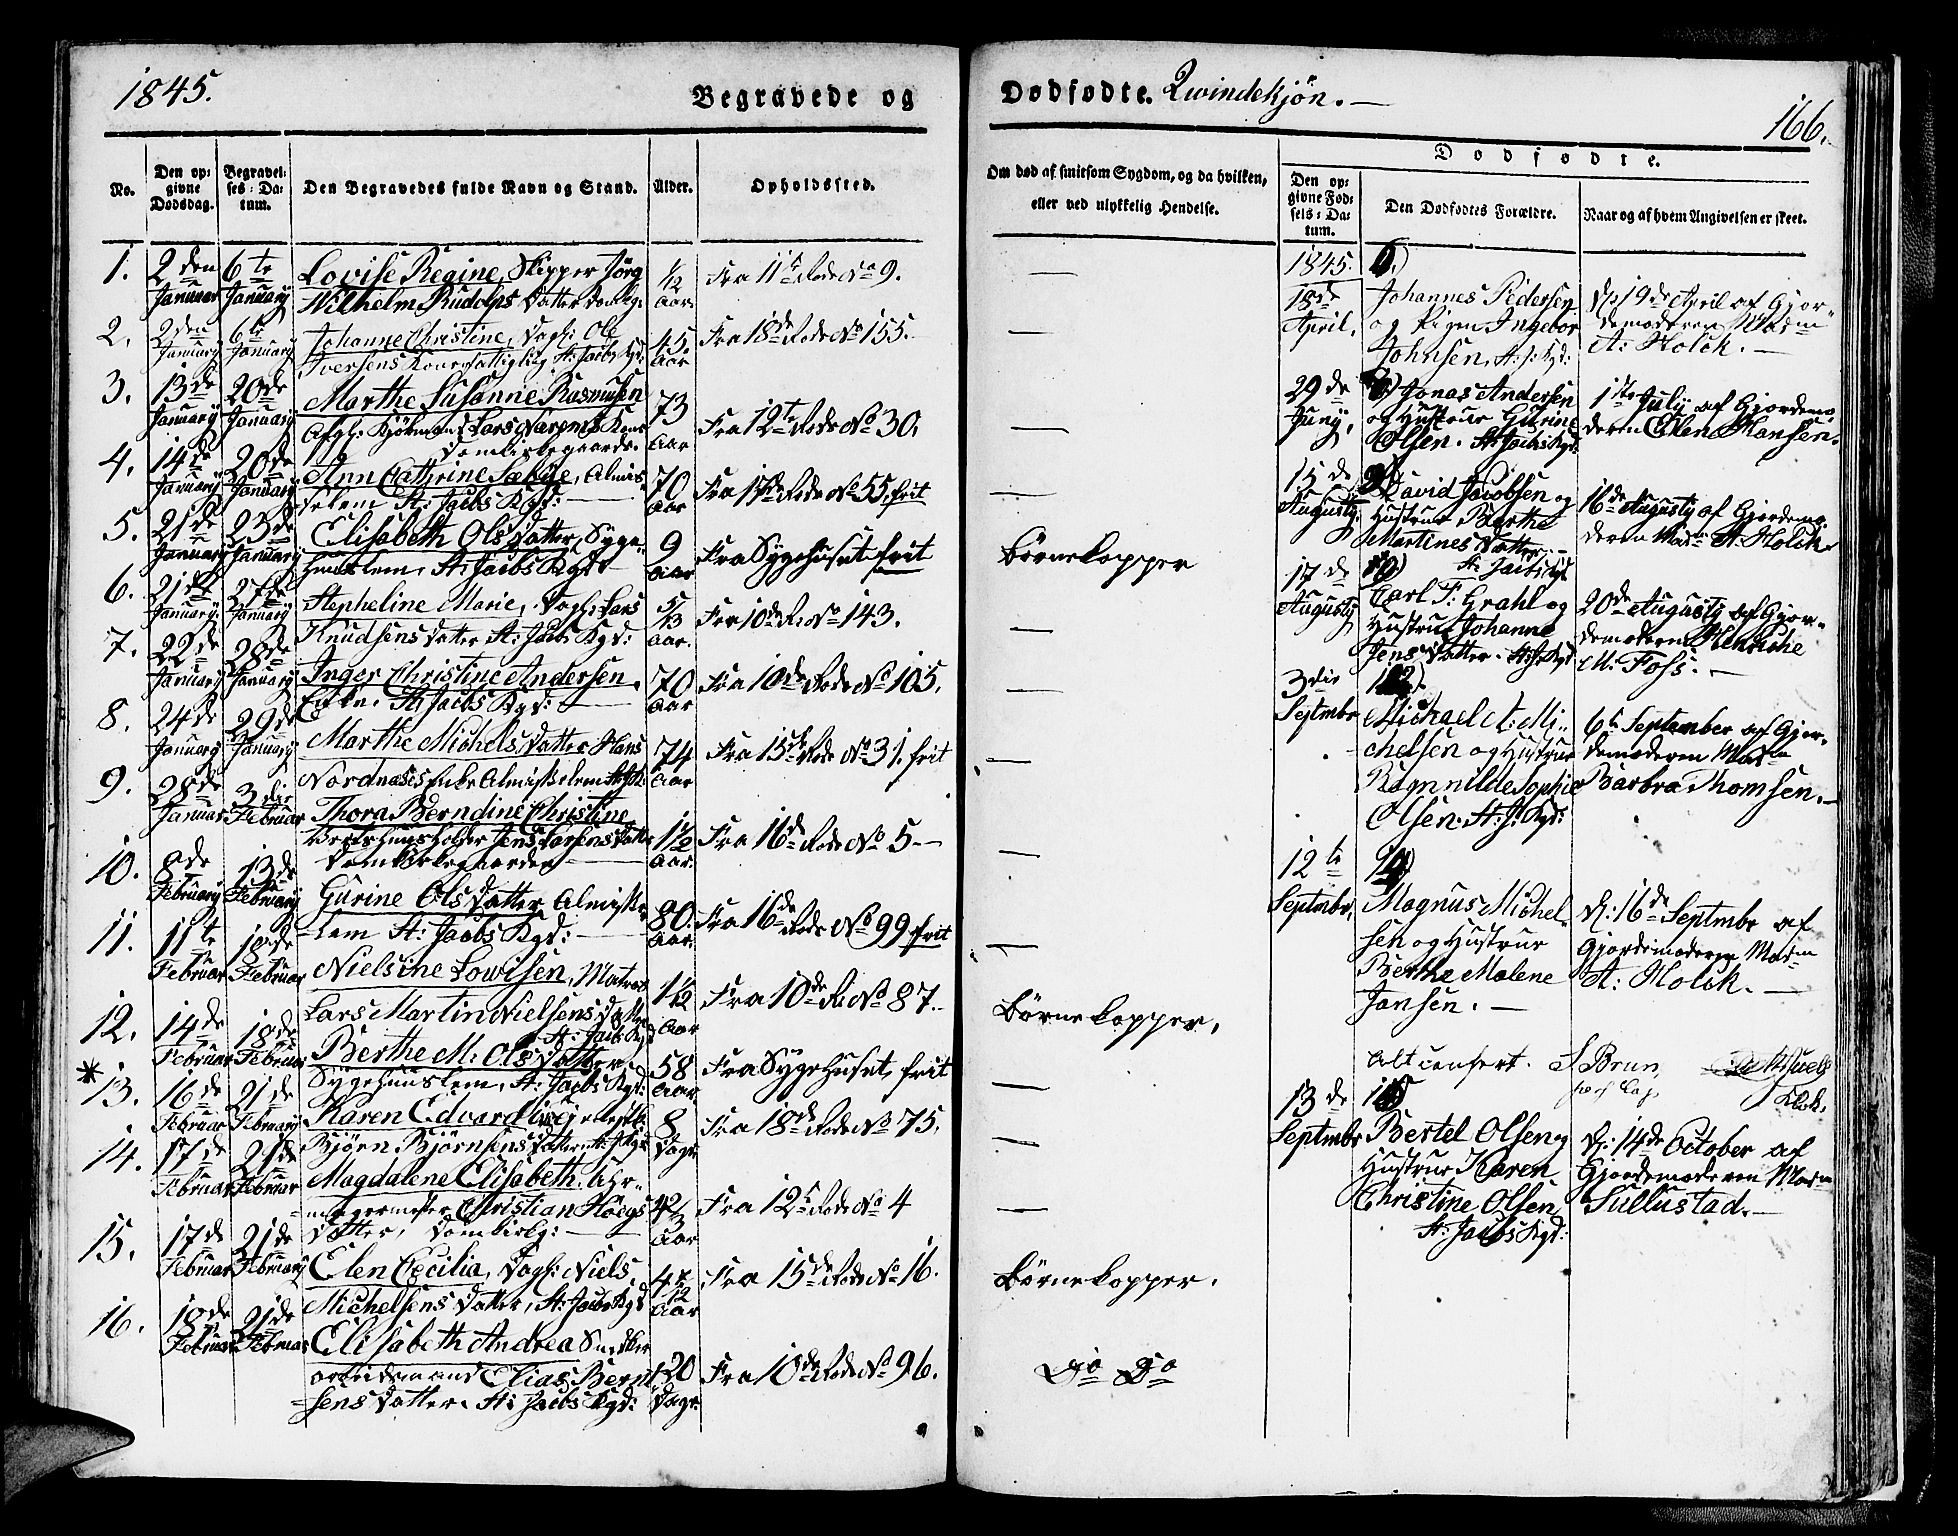 1845.
Begravede og
Dødfødte. Qvindekjön. —
166.
No.
Den opgivne Dødsdag.
Begravelses-Datum.
Den Begravedes fulde Navn og Stand.
Alder.
Opholdssted.
Om død af smitsom Sygdom, og da hvilken, eller ved ulykkelig Hendelse.
Dødfødte.
Den opgivne Fødsels-Datum.
Den Dødfødtes Forældre.
Naar og af hvem Angivelsen er skeet.
1. 2den Januar 6te January Lovise Regine, Skipper Jörg
Wilhelm Rudolps Datter Domkg: 1/12 Aar. Fra 11te Rode No 9. —
2. 2den January 6te January Johanne Christine, Dagl: Ole
Iversens Datter St: Jacobs Kgd: 45 Aar Fra 18de Rode No 155. —
3. 13de January 20de January Marthe Susanne Rasmusen
Afgl: Kjöbmand Lars Kone
Domkirkegaarden. 73 Aar Fra 12te Rode No 30. —
4. 14de January 20de January Ann Cathrine Sæbye, Almis-
selem St: Jacobs Kgd: 70 Aar Fra 17de Rode No 55, frit —
5. 21de January 23de January Elisabeth Ols Datter, Syge-
huuslem, St: Jacobs Kgd: 9 Aar Fra Sygehuset frit Börnekopper
6. 21de January 27de January Stepheline Marie, Dagl: Lars
Knudsens Datter St: Jacobs Kgd: 5/13 Aar. Fra 10de R. No 143. —
7. 22de January 28de January Inger Christine Andersen,
Enke. St: Jacobs Kgd: 70 Aar Fra 10de Rode No 105. —
8. 24de January 29de January Marthe Michels Datter Hans
Nordnæses Enke Almisselem 74 Aar Fra 15de Rode No 31. frit —
9. 28de Januar 3die Februar Thora Berndine Christine
Jens Larsens Datter
Domkirkegaarden 1 1/12 Aar. Fra 16de Rode No 5. —
10. 8de February 13de February Gurine Ols Datter Almisse-
lem St: Jacobs Kgd: 80 Aar. Fra 16de Rode No 99 frit —
11. 11te Februar 18de Februar Nielsine Lowisen, Matros
Lars Martin Nielsens Datter
St: Jacobs Kgd 1 1/12 Aar Fra 10de R. No 87. Börnekopper,
12. 14de Februar 18de Februar Berthe M: Ols Datter,
Sygehuuslem, St: Jacobs Kgd: 58 Aar Fra Sygehuset, frit —
* 13. 16de Februar 21de February Karen Edvardine,
Bjørn Bjørnsens Datter, St: J. Kgd 8 Dage Fra 18de Rode No 75. —
14. 17de Februar 21de Februar Magdalene Elisabeth. Uhr-
magermester Christian Höegs
Datter, Domkirkg: Fra 12te Rode No 4 —
15. 17de Februar 21de February Elen Cecilia, Dagl: Niels
Michelsens Datter, St: Jacobs Kgd 4 7/12 Aar Fra 15de Rode No 16. Börnekopper.
16. 18de Februar 21de Februar Elisabeth Andrea
arbeidsmand Elias Bernt-
sens Datter. St: Jacobs Kgd: 20 Dage. Fra 10de Rode No 96. Do Do
1845.
18de April, Johannes Pedersen
og Pigen Ingebor
Johnsen, St: J: Kgd:
D: 19de April af Gjor-
demoderen Madm
A: Holck. —
29de Juny, Jonas Andersen
og Hustrue Gurine
Olsen. St: Jacobs Kgd:
1ste July af Gjordemo-
deren Elen Hansen.
15de Augusty, David Jacobsen og
Hustrue Berthe
Martines Datter. —
St: Jacobs Kgd
16de Augusty af Gjordemo-
deren Madm A: Holck.
17de Augusty Carl F: Grahl og
Hustrue Johanne
Jens Datter. St: J: Kgd
20de Augusty af Gjor-
demoderen Henriche
M. Foss. —
3die Septmbr Michael A: Mi-
chelsen og Hustrue
Ragnnilde Sophie
Olsen. St: J: Kgd:
6te September af Gjor-
demoderen Madm
Barbra Thomsen. —
12te Septmbr, Magnus Michel-
sen og Hustrue
Berthe Malene
Jansen. —
D: 16de Septmbr af
Gjordemoderen Madm
A: Holck. —
Alt confert. J Brun,
Klok.
13de Septmbr Bertel Olsen og
Hustrue Karen
Christine Olsen,
St: Jacobs Kgd:
D: 14de October af
Gjordemoderen Madm
Sullustad. —